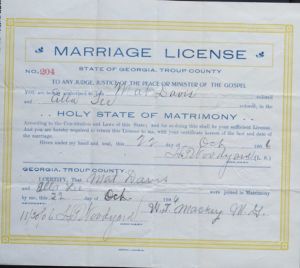 MARRIAGE LICENSE
STATE OF GEORGIA, TROUP COUNTY
No. 204
TO ANY JUDGE, JUSTICE OF THE PEACE OR MINISTER OF THE GOSPEL
You are authorized to Mat Davis
and Ella Lee
HOLY STATE OF MATRIMONY
According to the Constitution and Laws of this State; and for so doing this shall be your sufficient License.
And you are hereby required to return this License to me, with your certificate hereon of the fact and date of the marriage.
Given under my hand and seal, this 22 day of Oct 6
GEORGIA, TROUP COUNTY
I CERTIFY, That Mat Davis
and Ella Lee were joined in Matrimony
by me, this 22 day of Oct 6
W.T. Mackey M.G.